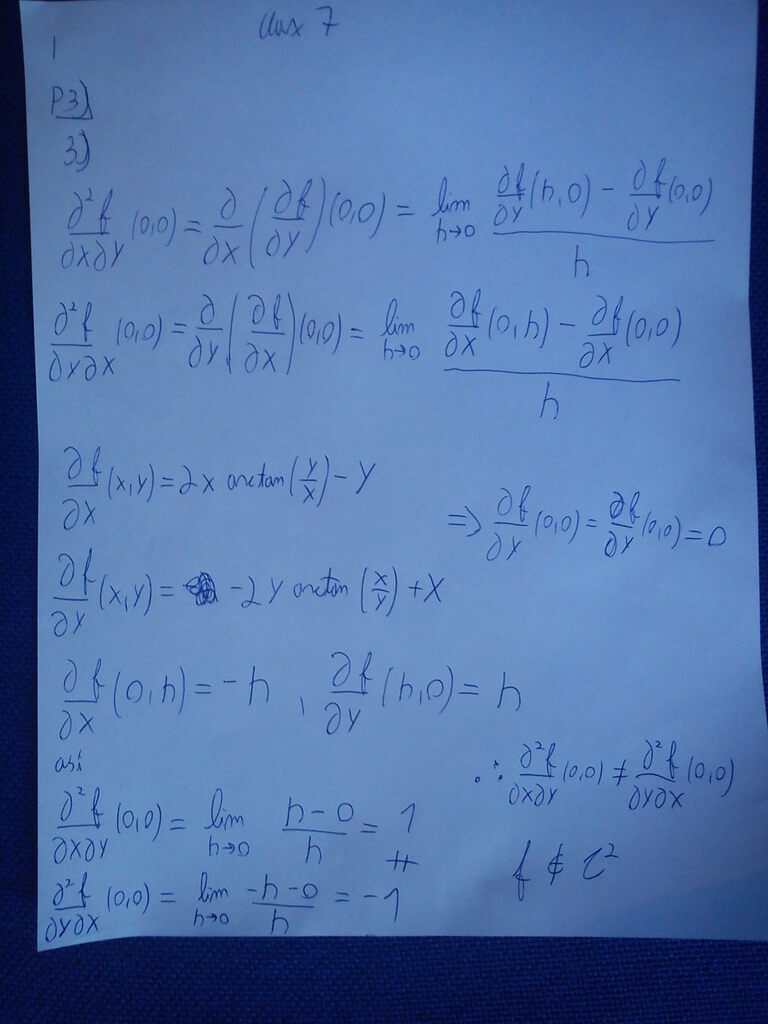 Aux 7
1
P3)
3)
∂²f/∂x∂y (0,0) = ∂/∂x (∂f/∂y)(0,0) = lim h→0 (∂f/∂y(h,0) − ∂f/∂y(0,0))/h
∂²f/∂y∂x (0,0) = ∂/∂y (∂f/∂x)(0,0) = lim h→0 (∂f/∂x(0,h) − ∂f/∂x(0,0))/h
∂f/∂x (x,y) = 2x arctan(y/x) − y
⇒ ∂f/∂y (0,0) = ∂f/∂y (0,0) = 0
∂f/∂y (x,y) = −2y arctan(x/y) + x
∂f/∂x (0,h) = −h , ∂f/∂y (h,0) = h
así
∴ ∂²f/∂x∂y (0,0) ≠ ∂²f/∂y∂x (0,0)
∂²f/∂x∂y (0,0) = lim h→0 (h−0)/h = 1
f ∉ C²
∂²f/∂y∂x (0,0) = lim h→0 (−h−0)/h = −1